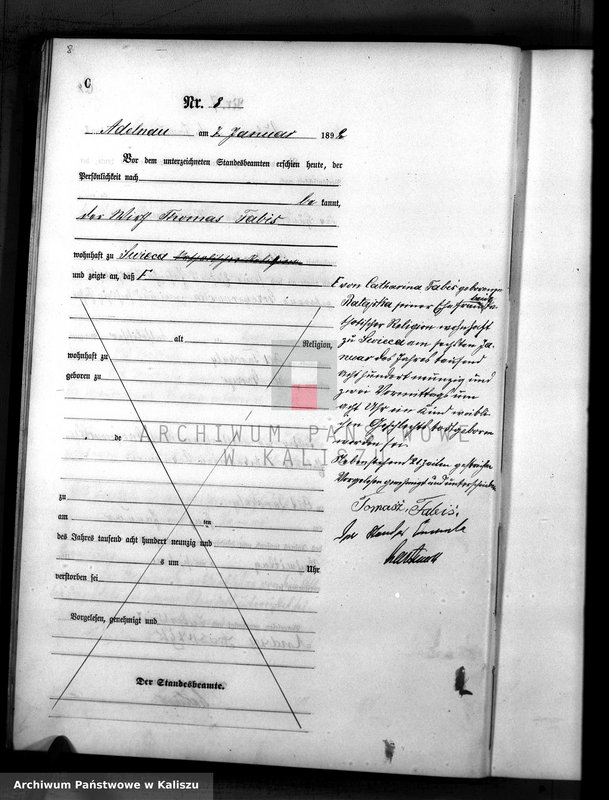 8
C
Nr. 8
Adelnau am 7 Januar 1892
Vor dem unterzeichneten Standesbeamten erschien heute, der
Persönlichkeit nach
be kannt,
der Wirth Thomas Tabiś
wohnhaft zu Swieca katholischer Religion
und zeigte an, daß F
alt Religion,
wohnhaft zu
geboren zu
de
zu
am ten
des Jahres tausend acht hundert neunzig und
s um Uhr
verstorben sei
Vorgelesen, genehmigt und
Der Standesbeamte.
F von Catharina Tabiś geborenen
seiner Ehefrau
katholischer Religion wohnhaft
zu Swieca am sechsten Ja-
nuar des Jahres tausend
acht hundert neunzig und
zwei Vormittags um
acht Uhr ein Kind weibli-
chen Geschlechts todtgeboren
worden sei.
Nebenstehend 21 Zeilen gestrichen
Vorgelesen genehmigt und unterschrieben
Tomasz Tabiś.
Der Standes Beamte
ARCHIWUM PAŃSTWOWE
W KALISZU
Archiwum Państwowe w Kaliszu